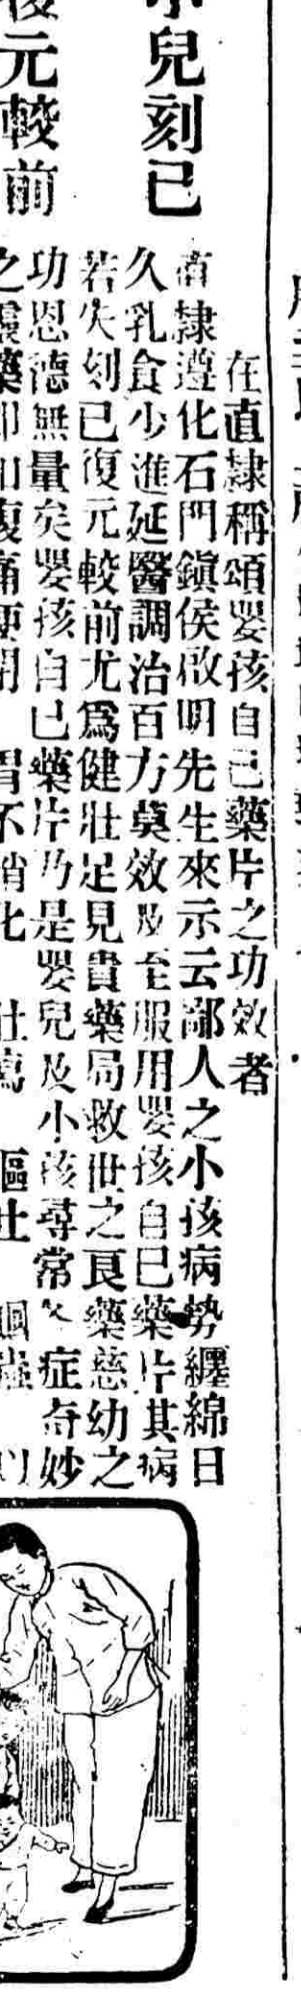 小兒刻已
復元較前
在直隸稱頌嬰孩自己藥片之功效者
直隸遵化石門鎭侯啟明先生來示云鄙人之小孩病勢纒綿日
久乳食少進延醫調治百方莫效及至服用嬰孩自已藥片其病
若失刻已復元較前尤爲健壯足見貴藥局救世之良藥慈幼之
功恩德無量矣嬰孩自已藥片乃是嬰兒及小孩尋常之症奇妙
之靈藥即如腹痛便閉 胃不消化 吐瀉 嘔吐 蛔蟲 以